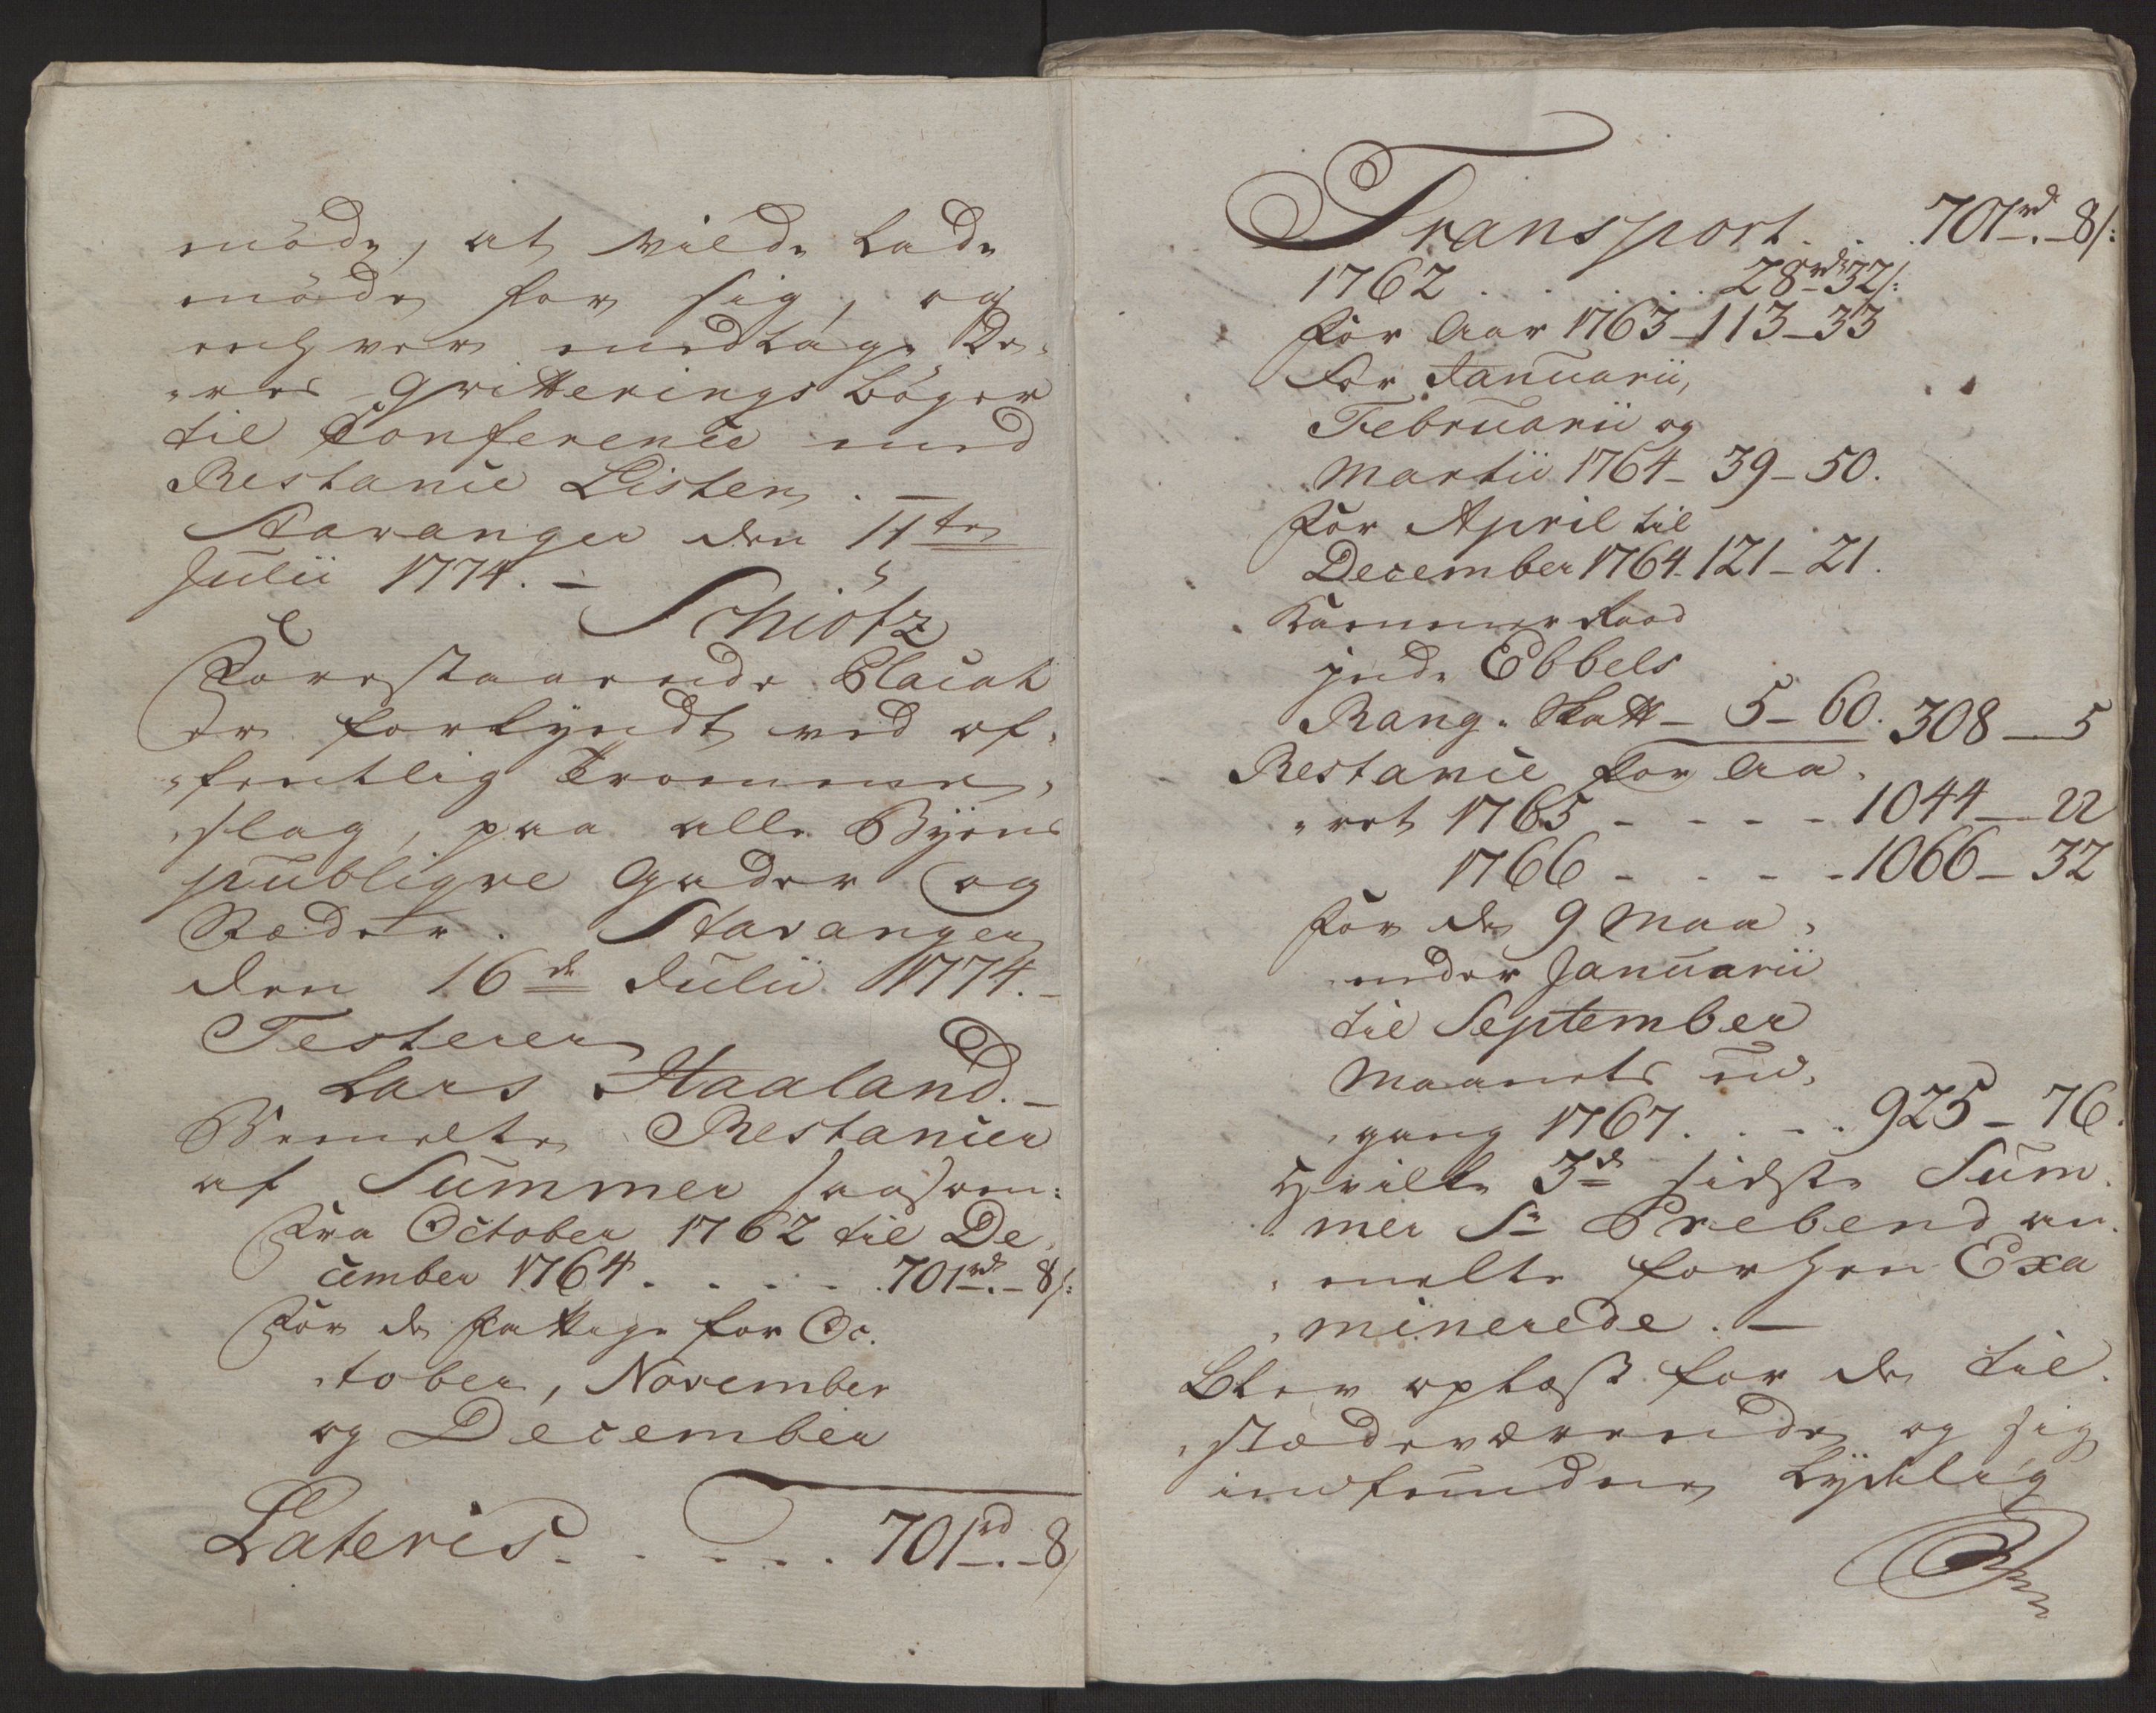 møde, at vilde lade
møde for sig, og
enhver medtage De„
„res Qvitterings bøger
til Conference med
Restance Listen. —
Stavanger den 11te
Julii 1774. —
Schiøtz
Forestaaende Placat
er forkyndt ved of„
„fentlig Tromme„
„slag, paa alle Byens
publiqve Gader og
Stæder. Stavanger
den 16de Julii 1774. —
Testerer
Lars Haaland. —
Bemelte Restancer
af Summer saasom:
Fra October 1762 til De„
cember 1764. . . . . . 701rd. – 8s:
For de fattige for Oc„
„tober, November
og December
Lateris. . . . . . 701rd. – 8s
Transport. . . 701rd. – 8s:
1762 . . . . . . 28rd 32s:
for Aar 1763 – 113 – 33
for Januarii,
Februarii og
Martii 1764 – 39 – 50.
for April til
December 1764. 121 – 21.
Kammer Raad
inde Ebbels
Rang. Skatt – 5 – 60. 308 – 5
Restance for Aa„
„ret 1765 - - - - 1044 – 22
1766 - - - - 1066 – 32
for de 9 Maa„
„neder Januarii
til September
Maanets ud„
„gang 1767. . . . 925 – 76.
Hvilke 3de sidste Sum„
mer Sr Prebend an„
„melte forhen Exa
„minerede. —
Blev oplæst for de til„
„stædeværende og sig
indfundne lydelig